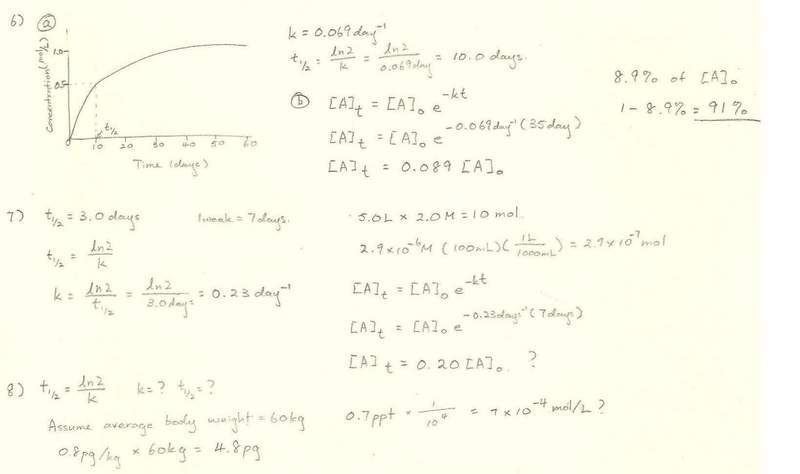 6) ⓐ
Concentration (mol/L)
1.0
0.5
t₁/₂
0 10 20 30 40 50 60
Time (days)
k = 0.069 day⁻¹
t₁/₂ = ln2/k = ln2/0.069day = 10.0 days.
ⓑ [A]t = [A]₀ e^-kt
[A]t = [A]₀ e^-0.069day⁻¹(35day)
[A]t = 0.089 [A]₀
8.9% of [A]₀
1 - 8.9% = 91%
7) t₁/₂ = 3.0 days 1week = 7days.
t₁/₂ = ln2/k
k = ln2/t₁/₂ = ln2/3.0days = 0.23 day⁻¹
5.0L × 2.0M = 10 mol
2.9×10⁻⁶M (100mL)(1L/1000mL) = 2.9×10⁻⁷mol
[A]t = [A]₀ e^-kt
[A]t = [A]₀ e^-0.23days⁻¹(7days)
[A]t = 0.20 [A]₀. ?
8) t₁/₂ = ln2/k k=? t₁/₂=?
Assume average body weight = 60kg
0.8pg/kg × 60kg = 4.8pg
0.7ppt × 1/10⁴ = 7×10⁻⁴ mol/L ?